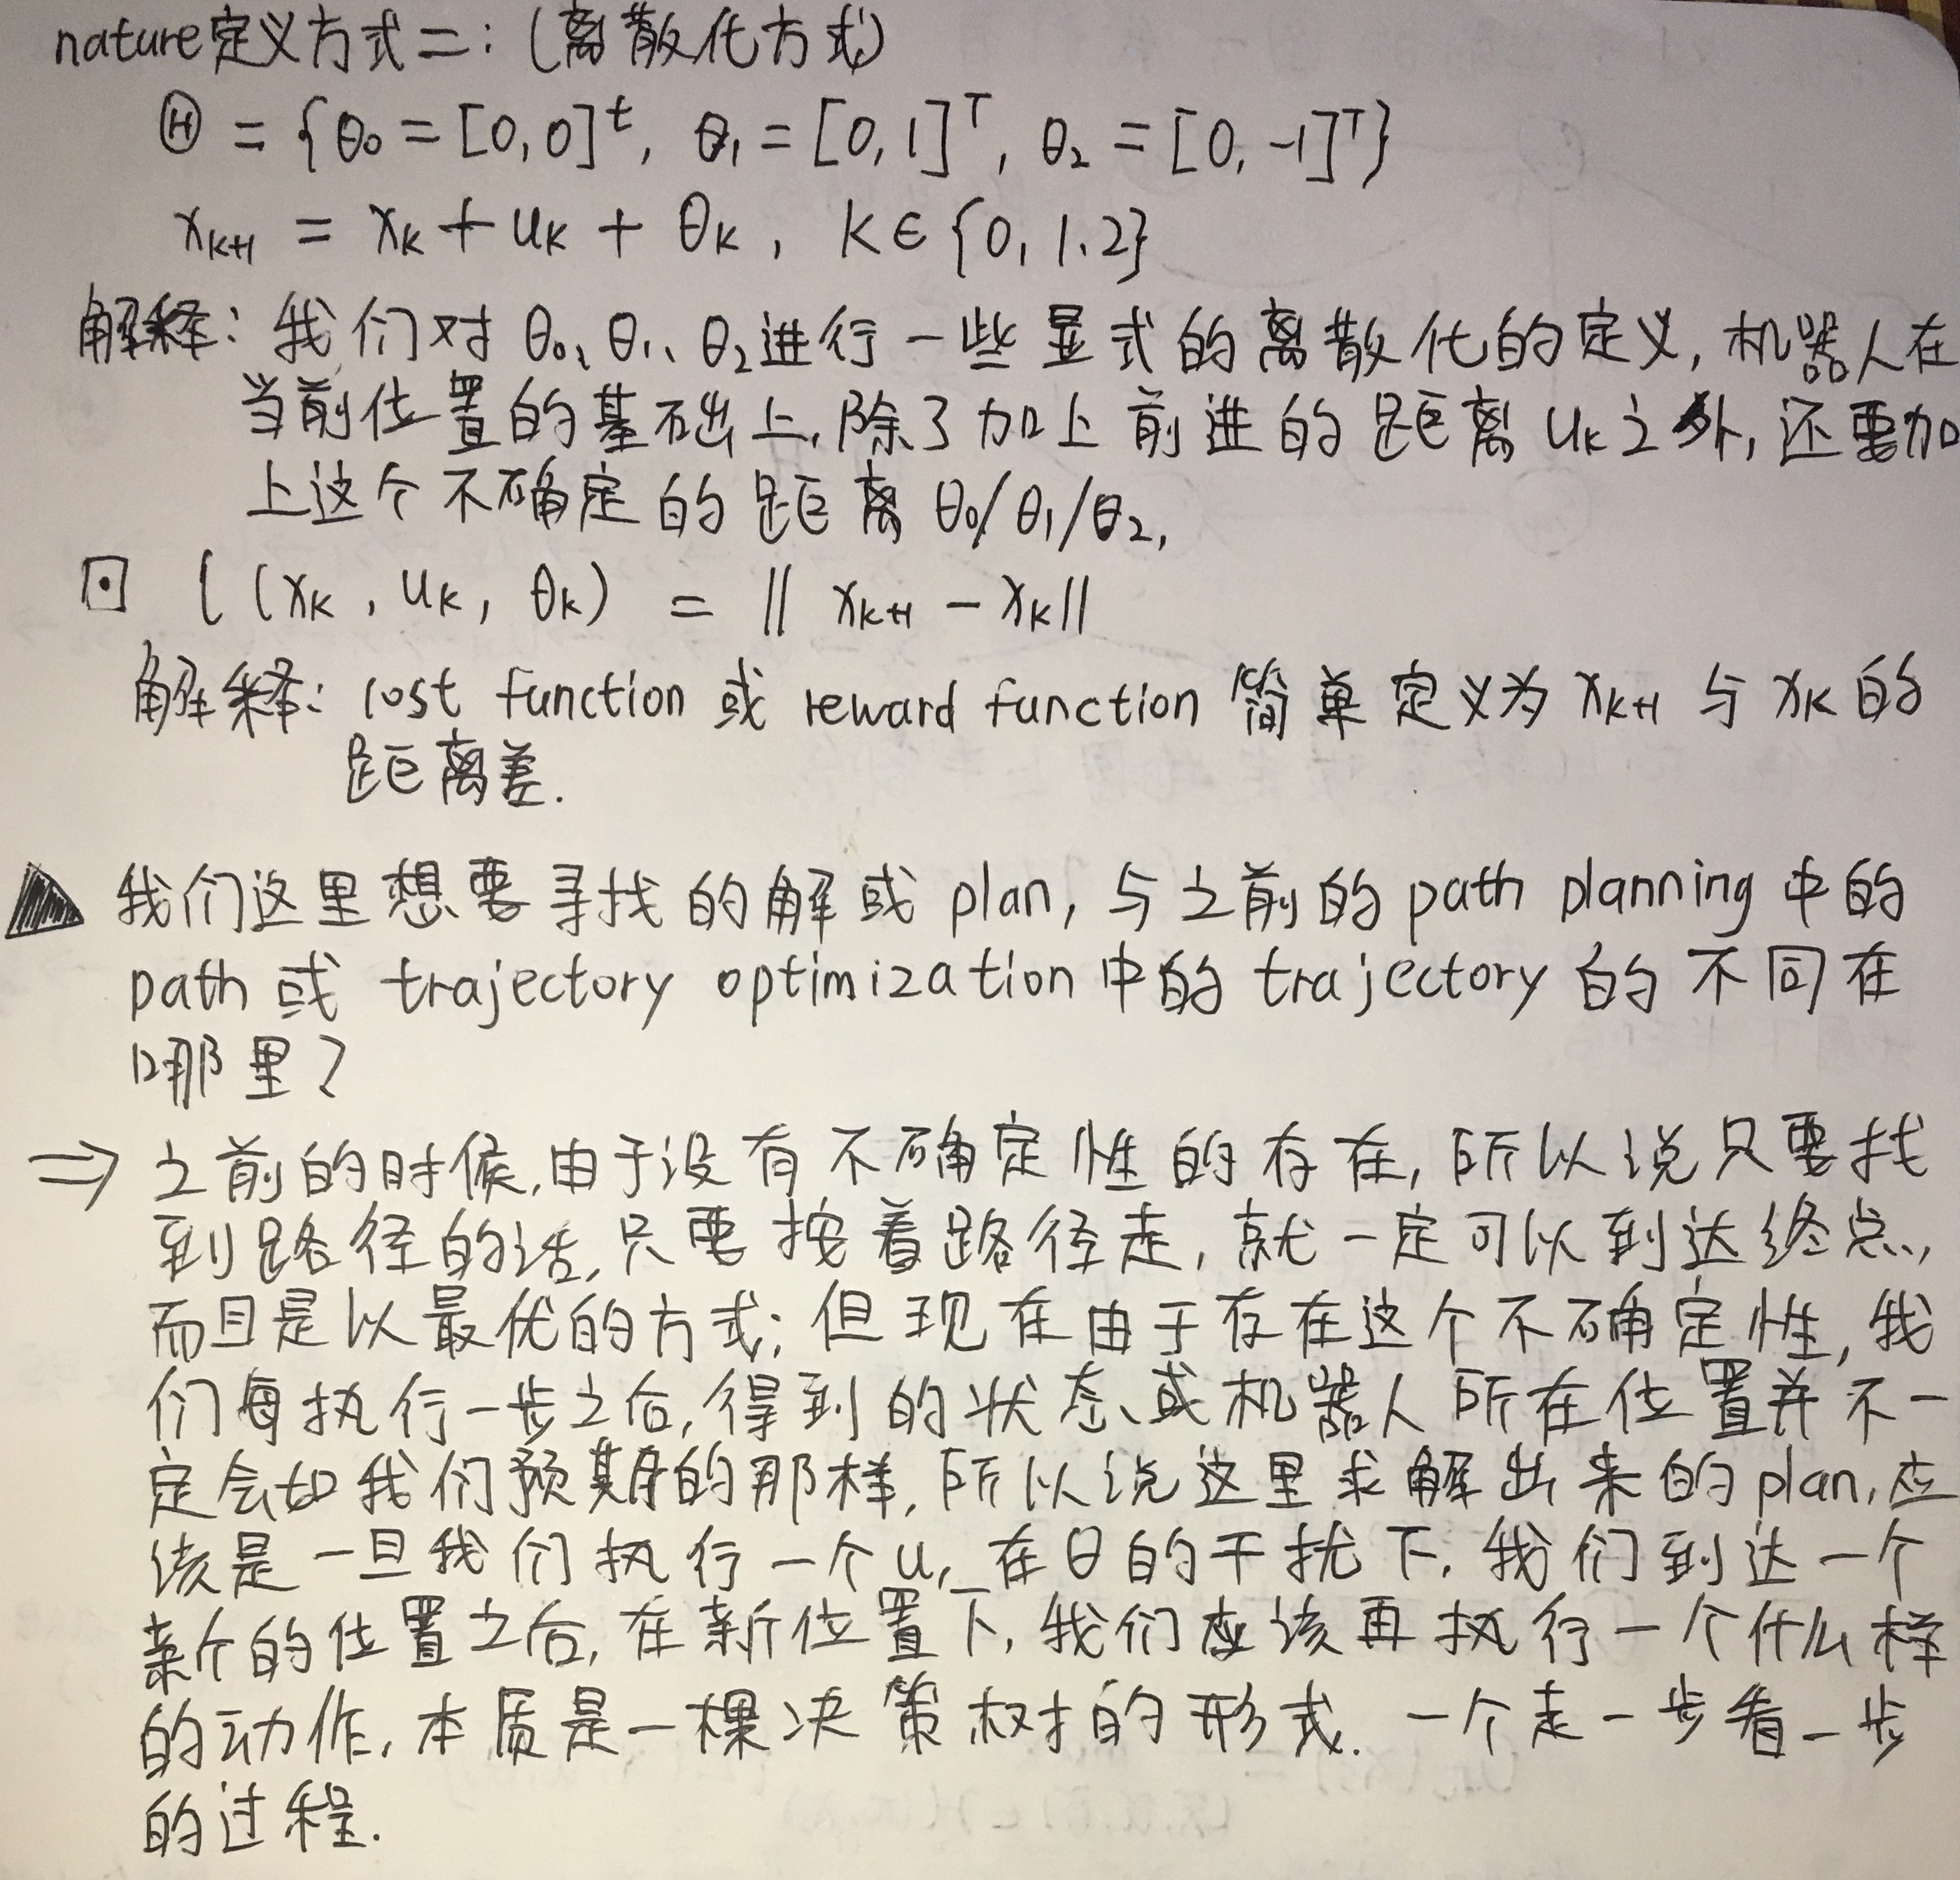 nature定义方式二:(离散化方式)
Ⓗ = {θ₀ = [0,0]ᵗ, θ₁ = [0,1]ᵀ, θ₂ = [0,-1]ᵀ}
xₖ₊₁ = xₖ + uₖ + θₖ, k∈{0,1.2}
解释: 我们对θ₀、θ₁、θ₂进行一些显式的离散化的定义,机器人在
当前位置的基础上,除了加上前进的距离uₖ之外,还要加
上这个不确定的距离θ₀/θ₁/θ₂,
⊡ l(xₖ, uₖ, θₖ) = ‖xₖ₊₁ - xₖ‖
解释: cost function 或 reward function 简单定义为xₖ₊₁与xₖ的
距离差.
我们这里想要寻找的解或plan,与之前的path planning中的
path或 trajectory optimization中的trajectory的不同在
哪里?
⇒ 之前的时候,由于没有不确定性的存在,所以说只要找
到路径的话,只要按着路径走,就一定可以到达终点,
而且是以最优的方式;但现在由于存在这个不确定性,我
们每执行一步之后,得到的状态、或机器人所在位置并不一
定会如我们预期的那样,所以说这里求解出来的plan,应
该是一旦我们执行一个u,在θ的干扰下,我们到达一个
新的位置之后,在新位置下,我们应该再执行一个什么样
的动作,本质是一棵决策树的形式.一个走一步看一步
的过程.